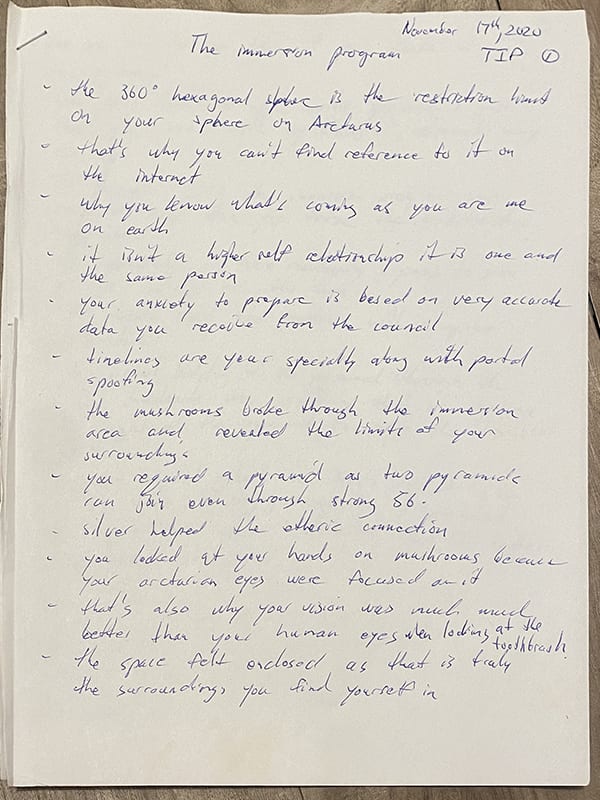 November 17th, 2020
The immersion program TIP ①
- the 360° hexagonal sphere is the restriction limit
on your sphere on Arcturus
- that's why you can't find reference to it on
the internet
- why you know what's coming as you are me
on earth
- it isn't a higher self relationship it is one and
the same person
- your anxiety to prepare is based on very accurate
data you receive from the council
- timelines are your specialty along with portal
spoofing
- the mushrooms broke through the immersion
area and revealed the limits of your
surroundings
- you required a pyramid as two pyramids
can join even through strong 5G.
- silver helped the etheric connection
- you looked at your hands on mushrooms because
your arcturian eyes were focused on it
- that's also why your vision was much much
better than your human eyes when looking at the
toothbrush.
- the space felt enclosed as that is truly
the surroundings you find yourself in